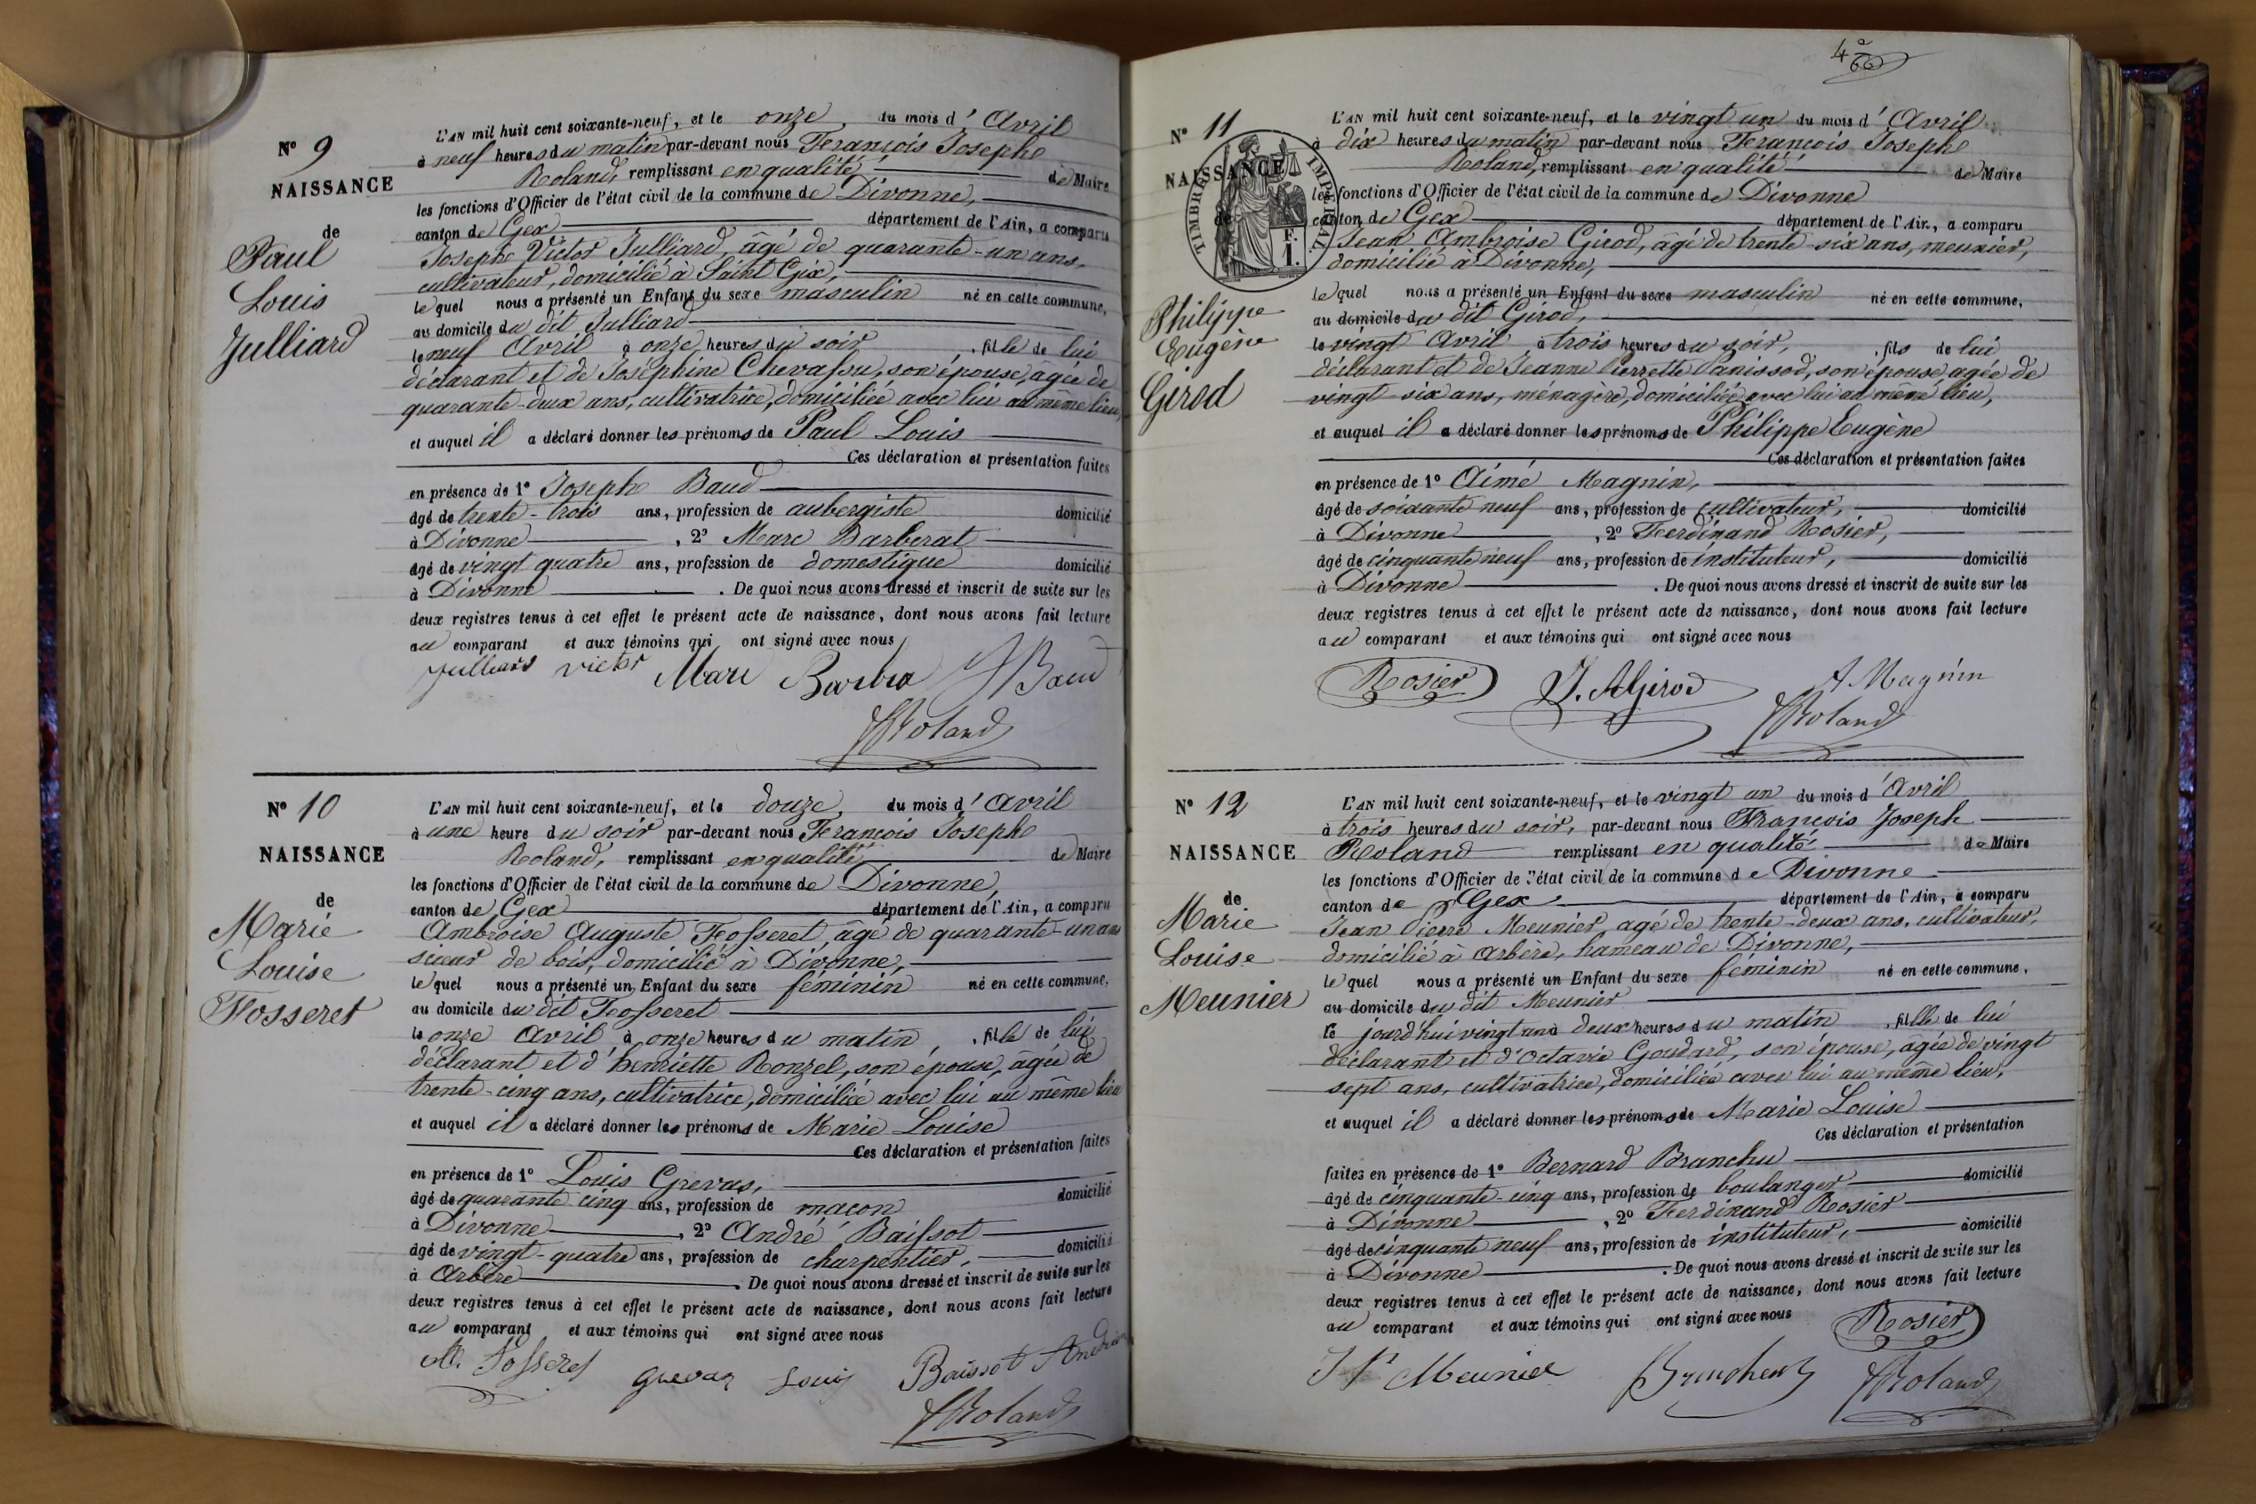 N° 9
NAISSANCE
de
Paul
Louis
Julliard
L'AN mil huit cent soixante-neuf, et le onze du mois d'Avril
à neuf heures du matin par-devant nous François Joseph
Roland, remplissant en qualité de Maire
les fonctions d'Officier de l'état civil de la commune de Divonne,
canton de Gex département de l'Ain, a comparu
Joseph Victor Julliard, âgé de quarante-un ans,
cultivateur, domicilié à Saint Gix,
lequel nous a présenté un Enfant du sexe masculin né en cette commune,
au domicile du dit Julliard
le neuf Avril à onze heures du soir, fils de lui
déclarant et de Joséphine Chevassu, son épouse, agée de
quarante-deux ans, cultivatrice, domiciliée avec lui au même lieu,
et auquel il a déclaré donner les prénoms de Paul Louis
Ces déclaration et présentation faites
en présence de 1° Joseph Baud
âgé de trente-trois ans, profession de aubergiste domicilié
à Divonne, 2° Marc Barberat
âgé de vingt quatre ans, profession de domestique domicilié
à Divonne. De quoi nous avons dressé et inscrit de suite sur les
deux registres tenus à cet effet le présent acte de naissance, dont nous avons fait lecture
au comparant et aux témoins qui ont signé avec nous
Julliard Victor Marc Barbra J Baud
FRoland
N° 10
NAISSANCE
de
Marie
Louise
Fosseret
L'AN mil huit cent soixante-neuf, et le douze, du mois d'Avril
à une heure du soir par-devant nous François Joseph
Roland, remplissant en qualité de Maire
les fonctions d'Officier de l'état civil de la commune de Divonne,
canton de Gex département de l'Ain, a comparu
Ambroise Auguste Fosseret, âgé de quarante-un ans
scieur de bois, domicilié à Divonne,
lequel nous a présenté un Enfant du sexe féminin né en cette commune,
au domicile du dit Fosseret
le onze Avril à onze heures du matin, fille de lui
déclarant et d'henriette Ronzel, son épouse, âgée de
trente-cinq ans, cultivatrice, domiciliée avec lui au même lieu
et auquel il a déclaré donner les prénoms de Marie Louise
Ces déclaration et présentation faites
en présence de 1° Louis Grevas,
âgé de quarante cinq ans, profession de maçon domicilié
à Divonne, 2° André Baissot
âgé de vingt-quatre ans, profession de charpentier, domicilié
à Arbère. De quoi nous avons dressé et inscrit de suite sur les
deux registres tenus à cet effet le présent acte de naissance, dont nous avons fait lecture
au comparant et aux témoins qui ont signé avec nous
A. Fosseret Grevaz Louis Baissot André
FRoland
N° 11
NAISSANCE
de
TIMBRE IMPERIAL
F.
1.
Philippe
Eugène
Girod
L'AN mil huit cent soixante-neuf, et le vingt un du mois d'Avril
à dix heures du matin par-devant nous François Joseph
Roland, remplissant en qualité de Maire
les fonctions d'Officier de l'état civil de la commune de Divonne
canton de Gex département de l'Ain, a comparu
Jean Ambroise Girod, âgé de trente-six ans, meunier,
domicilié à Divonne,
lequel nous a présenté un Enfant du sexe masculin né en cette commune,
au domicile du dit Girod,
le vingt Avril à trois heures du soir, fils de lui
déclarant et de Jeanne Pierrette Panissod, son épouse, agée de
vingt-six ans, ménagère, domiciliée avec lui au même lieu,
et auquel il a déclaré donner les prénoms de Philippe Eugène
Ces déclaration et présentation faites
en présence de 1° Aimé Magnin,
âgé de soixante neuf ans, profession de cultivateur, domicilié
à Divonne, 2° Ferdinand Rosier,
âgé de cinquante neuf ans, profession de instituteur, domicilié
à Divonne. De quoi nous avons dressé et inscrit de suite sur les
deux registres tenus à cet effet le présent acte de naissance, dont nous avons fait lecture
au comparant et aux témoins qui ont signé avec nous
Rosier J. A Girod A Magnin
FRoland
N° 12
NAISSANCE
de
Marie
Louise
Meunier
L'AN mil huit cent soixante-neuf, et le vingt un du mois d'Avril
à trois heures du soir, par-devant nous François Joseph
Roland remplissant en qualité de Maire
les fonctions d'Officier de l'état civil de la commune de Divonne
canton de Gex département de l'Ain, a comparu
Jean Pierre Meunier, agé de trente-deux ans, cultivateur,
domicilié à Arbère, hameau de Divonne,
lequel nous a présenté un Enfant du sexe féminin né en cette commune,
au domicile du dit Meunier
le jourd'hui vingt un à deux heures du matin, fille de lui
déclarant et d'Octavie Goudard, son épouse, âgée de vingt
sept ans, cultivatrice, domiciliée avec lui au même lieu,
et auquel il a déclaré donner les prénoms de Marie Louise
Ces déclaration et présentation
faites en présence de 1° Bernard Branchu
âgé de cinquante-cinq ans, profession de boulanger domicilié
à Divonne, 2° Ferdinand Rosier
âgé de cinquante neuf ans, profession de instituteur, domicilié
à Divonne. De quoi nous avons dressé et inscrit de suite sur les
deux registres tenus à cet effet le présent acte de naissance, dont nous avons fait lecture
au comparant et aux témoins qui ont signé avec nous Rosier
J P Meunier Branchu FRoland